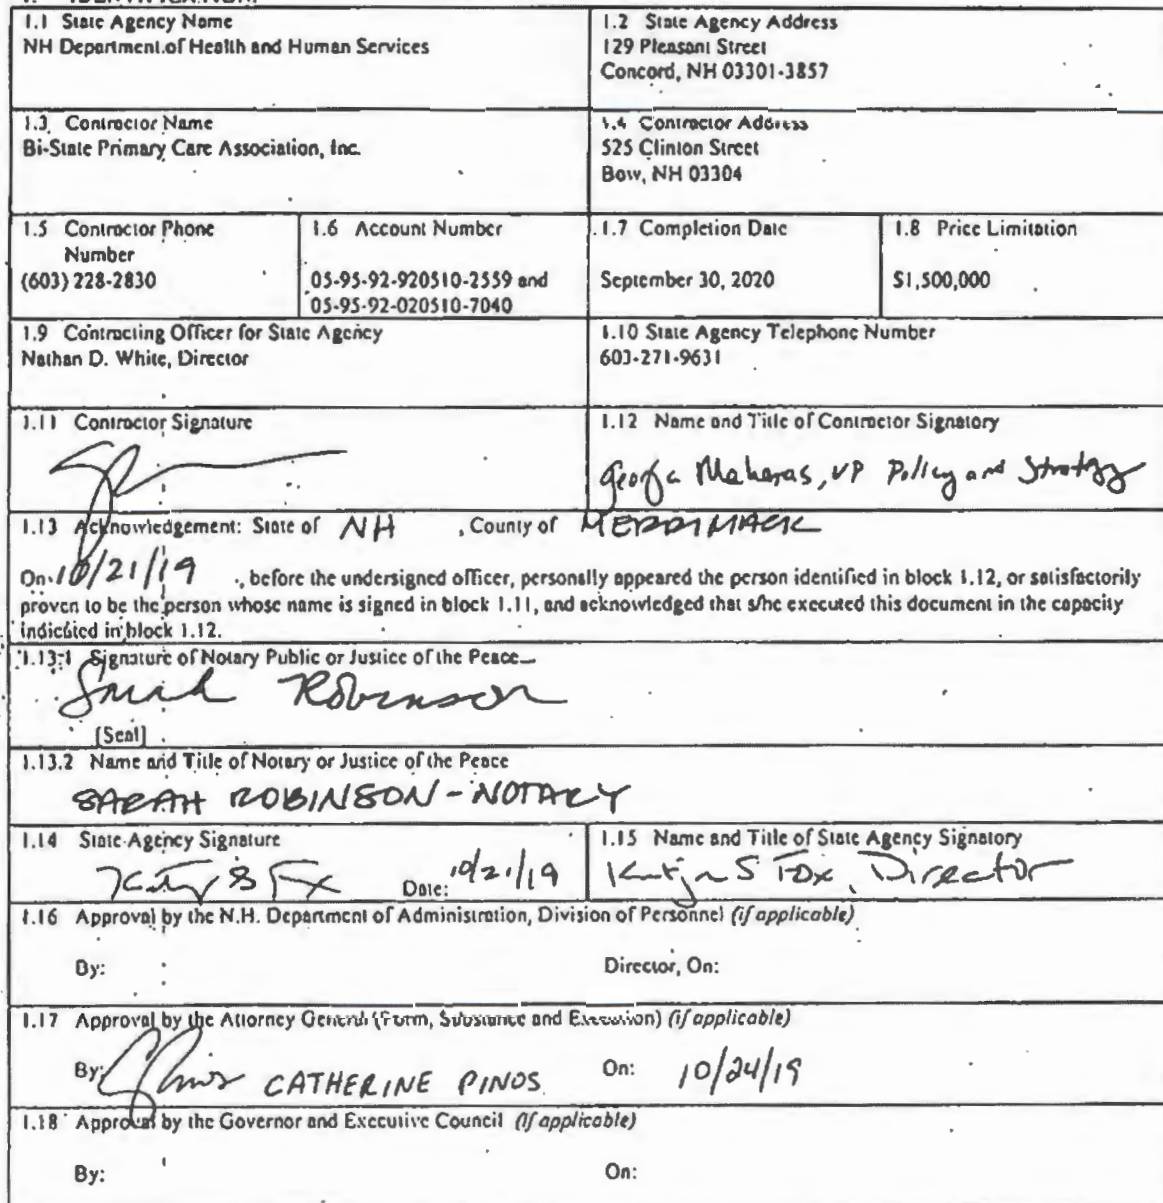 1. IDENTIFICATION.
1.1 State Agency Name
NH Department of Health and Human Services
1.2 State Agency Address
129 Pleasant Street
Concord, NH 03301-3857
1.3 Contractor Name
Bi-State Primary Care Association, Inc.
1.4 Contractor Address
525 Clinton Street
Bow, NH 03304
1.5 Contractor Phone
Number
(603) 228-2830
1.6 Account Number
05-95-92-920510-2559 and
05-95-92-020510-7040
1.7 Completion Date
September 30, 2020
1.8 Price Limitation
$1,500,000
1.9 Contracting Officer for State Agency
Nathan D. White, Director
1.10 State Agency Telephone Number
603-271-9631
1.11 Contractor Signature
1.12 Name and Title of Contractor Signatory
Georgia Maheras, VP Policy and Strategy
1.13 Acknowledgement: State of NH , County of MERRIMACK
On 10/21/19 , before the undersigned officer, personally appeared the person identified in block 1.12, or satisfactorily
proven to be the person whose name is signed in block 1.11, and acknowledged that s/he executed this document in the capacity
indicated in block 1.12.
1.13.1 Signature of Notary Public or Justice of the Peace
Sarah Robinson
[Seal]
1.13.2 Name and Title of Notary or Justice of the Peace
SARAH ROBINSON - NOTARY
1.14 State Agency Signature
Date: 10/21/19
1.15 Name and Title of State Agency Signatory
Katja S Fox, Director
1.16 Approval by the N.H. Department of Administration, Division of Personnel (if applicable)
By: Director, On:
1.17 Approval by the Attorney General (Form, Substance and Execution) (if applicable)
By: CATHERINE PINOS On: 10/24/19
1.18 Approval by the Governor and Executive Council (if applicable)
By: On: